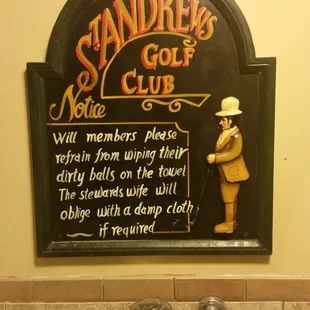 St ANDREWS
GOLF
CLUB
Notice
Will members please
refrain from wiping their
dirty balls on the towel
The stewards wife will
oblige with a damp cloth
if required